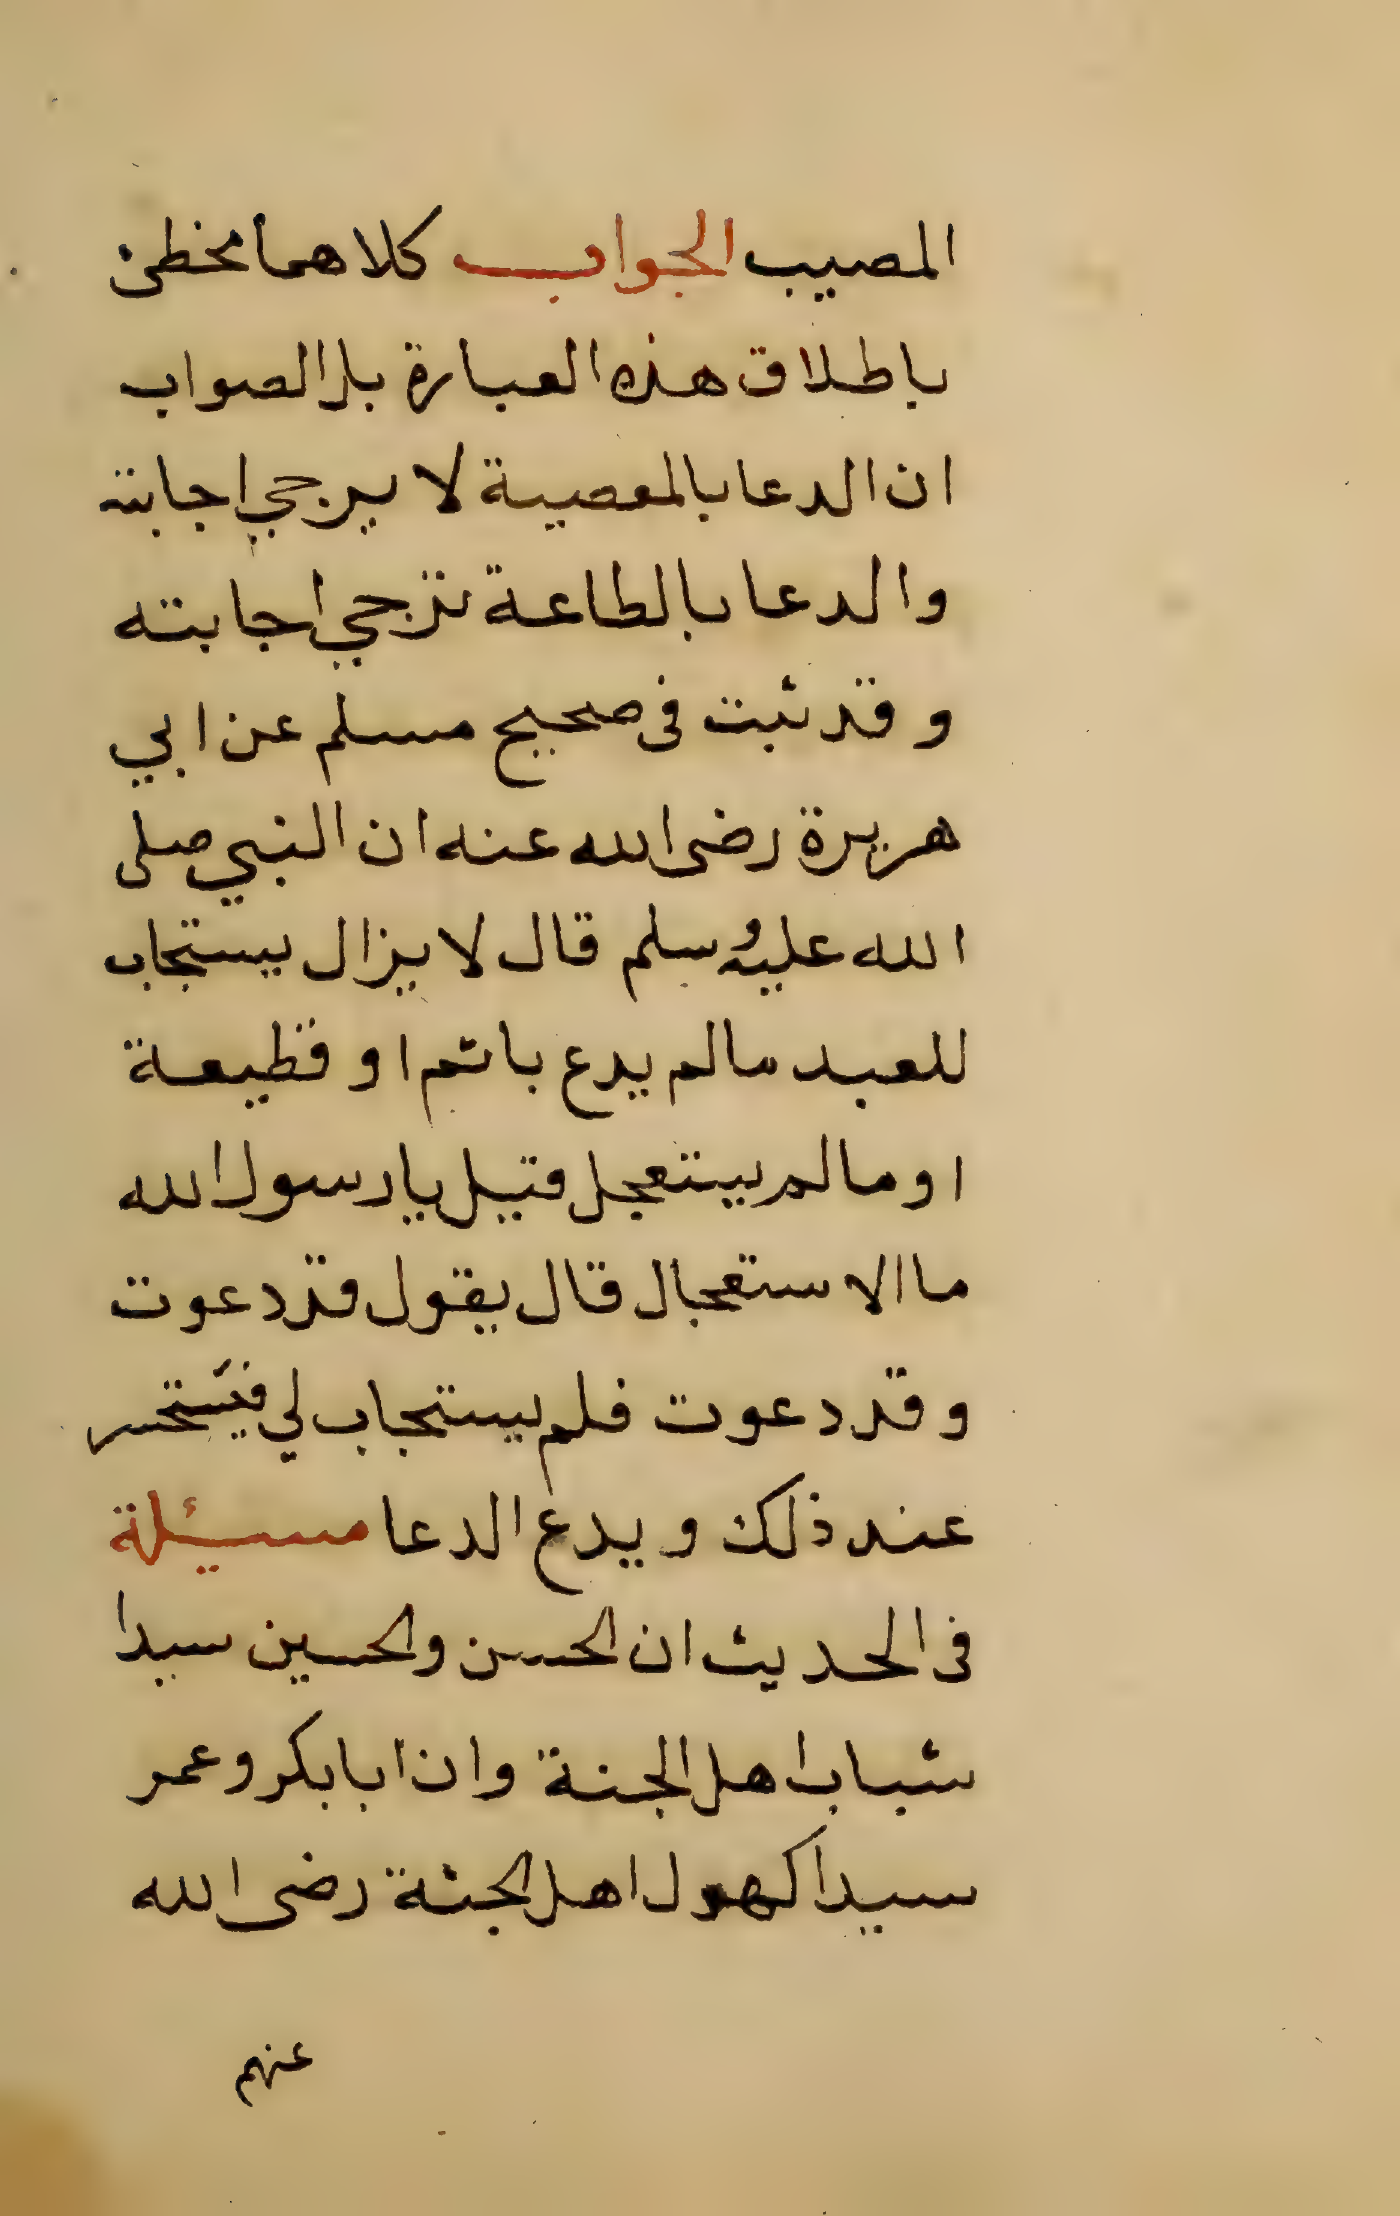 المصيب الجواب كلاهما مخطئ
باطلاق هذه العبارة بل الصواب
ان الدعا بالمعصية لا يرجي اجابته
والدعا بالطاعة ترجي اجابته
وقد ثبت فى صحيح مسلم عن ابي
هريرة رضى الله عنه ان النبي صلى
الله عليه وسلم قال لا يزال يستجاب
للعبد مالم يدع باثم او قطيعة
او مالم يستعجل قيل يا رسول الله
ما الاستعجال قال يقول قد دعوت
وقد دعوت فلم يستجاب لي فيستحسر
عند ذلك ويدع الدعا مسيئلة
فى الحديث ان الحسن والحسين سيدا
شباب اهل الجنة وان ابا بكر وعمر
سيدا كهول اهل الجنة رضى الله
عنهم